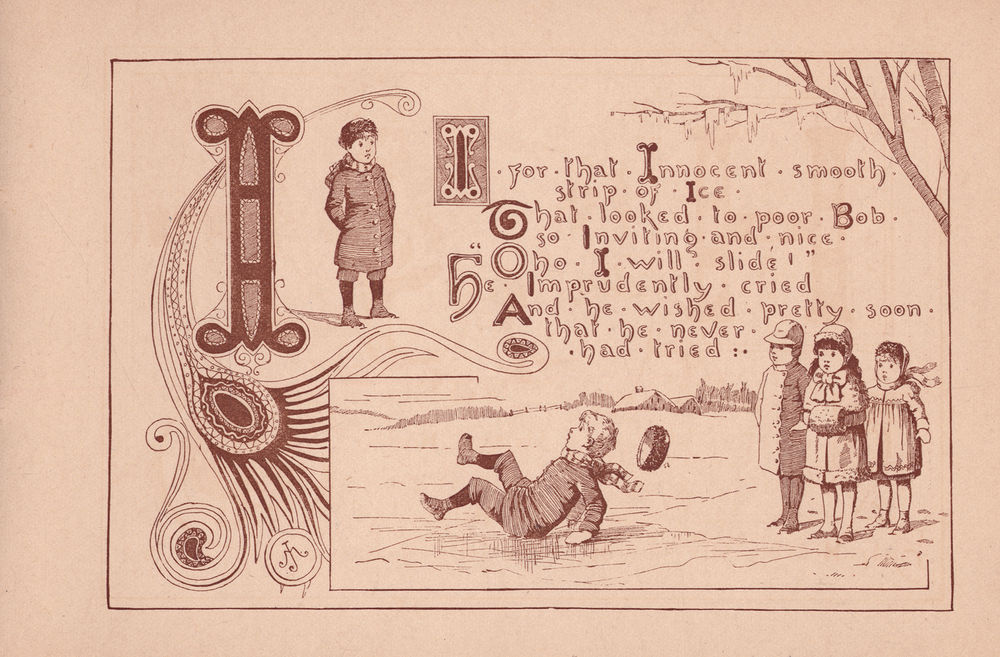 I
I · for · that · Innocent · smooth
strip · of · Ice ·
That · looked · to · poor · Bob ·
so · Inviting · and · nice ·
"Oho · I · will · slide!"
He · Imprudently · cried
And · he · wished · pretty · soon ·
that · he · never ·
· had · tried :·